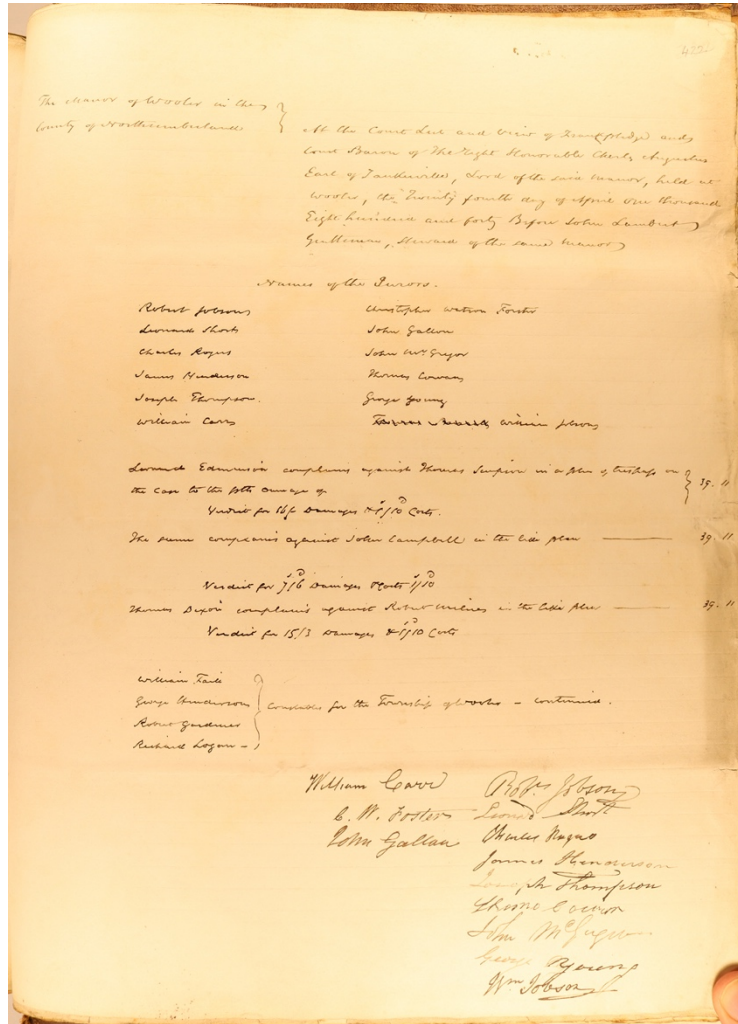 422
The Manor of Wooler in the
County of Northumberland
At the Court Leet and View of Frankpledge and
Court Baron of The Right Honorable Charles Augustus
Earl of Tankerville, Lord of the said Manor, held at
Wooler, the Twenty fourth day of April one thousand
Eight hundred and forty Before John Lambert
Gentleman, Steward of the same Manor
Names of the Jurors.
Robert Jobson Christopher Watson Forster
Leonard Short John Gallon
Charles Rogers John McGregor
James Henderson Thomas Cowans
Joseph Thompson. George Young
William Carr William Jobson
Leonard Edmunson complains against Thomas Simpson in a plea of trespass on
the case to the damage of 39. 11
Verdict for 16/ Damages & 1/10 Costs.
The same complains against John Campbell in the like plea 39. 11
Verdict for 7/6 Damages & Costs 1/10
Thomas Dixon complains against Robert Milnes in the like plea 39. 11
Verdict for 15/3 Damages & 1/10 Costs
William Faill
George Henderson
Robert Gardner
Richard Logan
Constables for the Township of Wooler - continued.
William Carr Robt. Jobson
C. W. Forster Leonard Short
John Gallon Charles Rogers
James Henderson
Joseph Thompson
Thomas Cowan
John McGregor
George Young
Wm Jobson